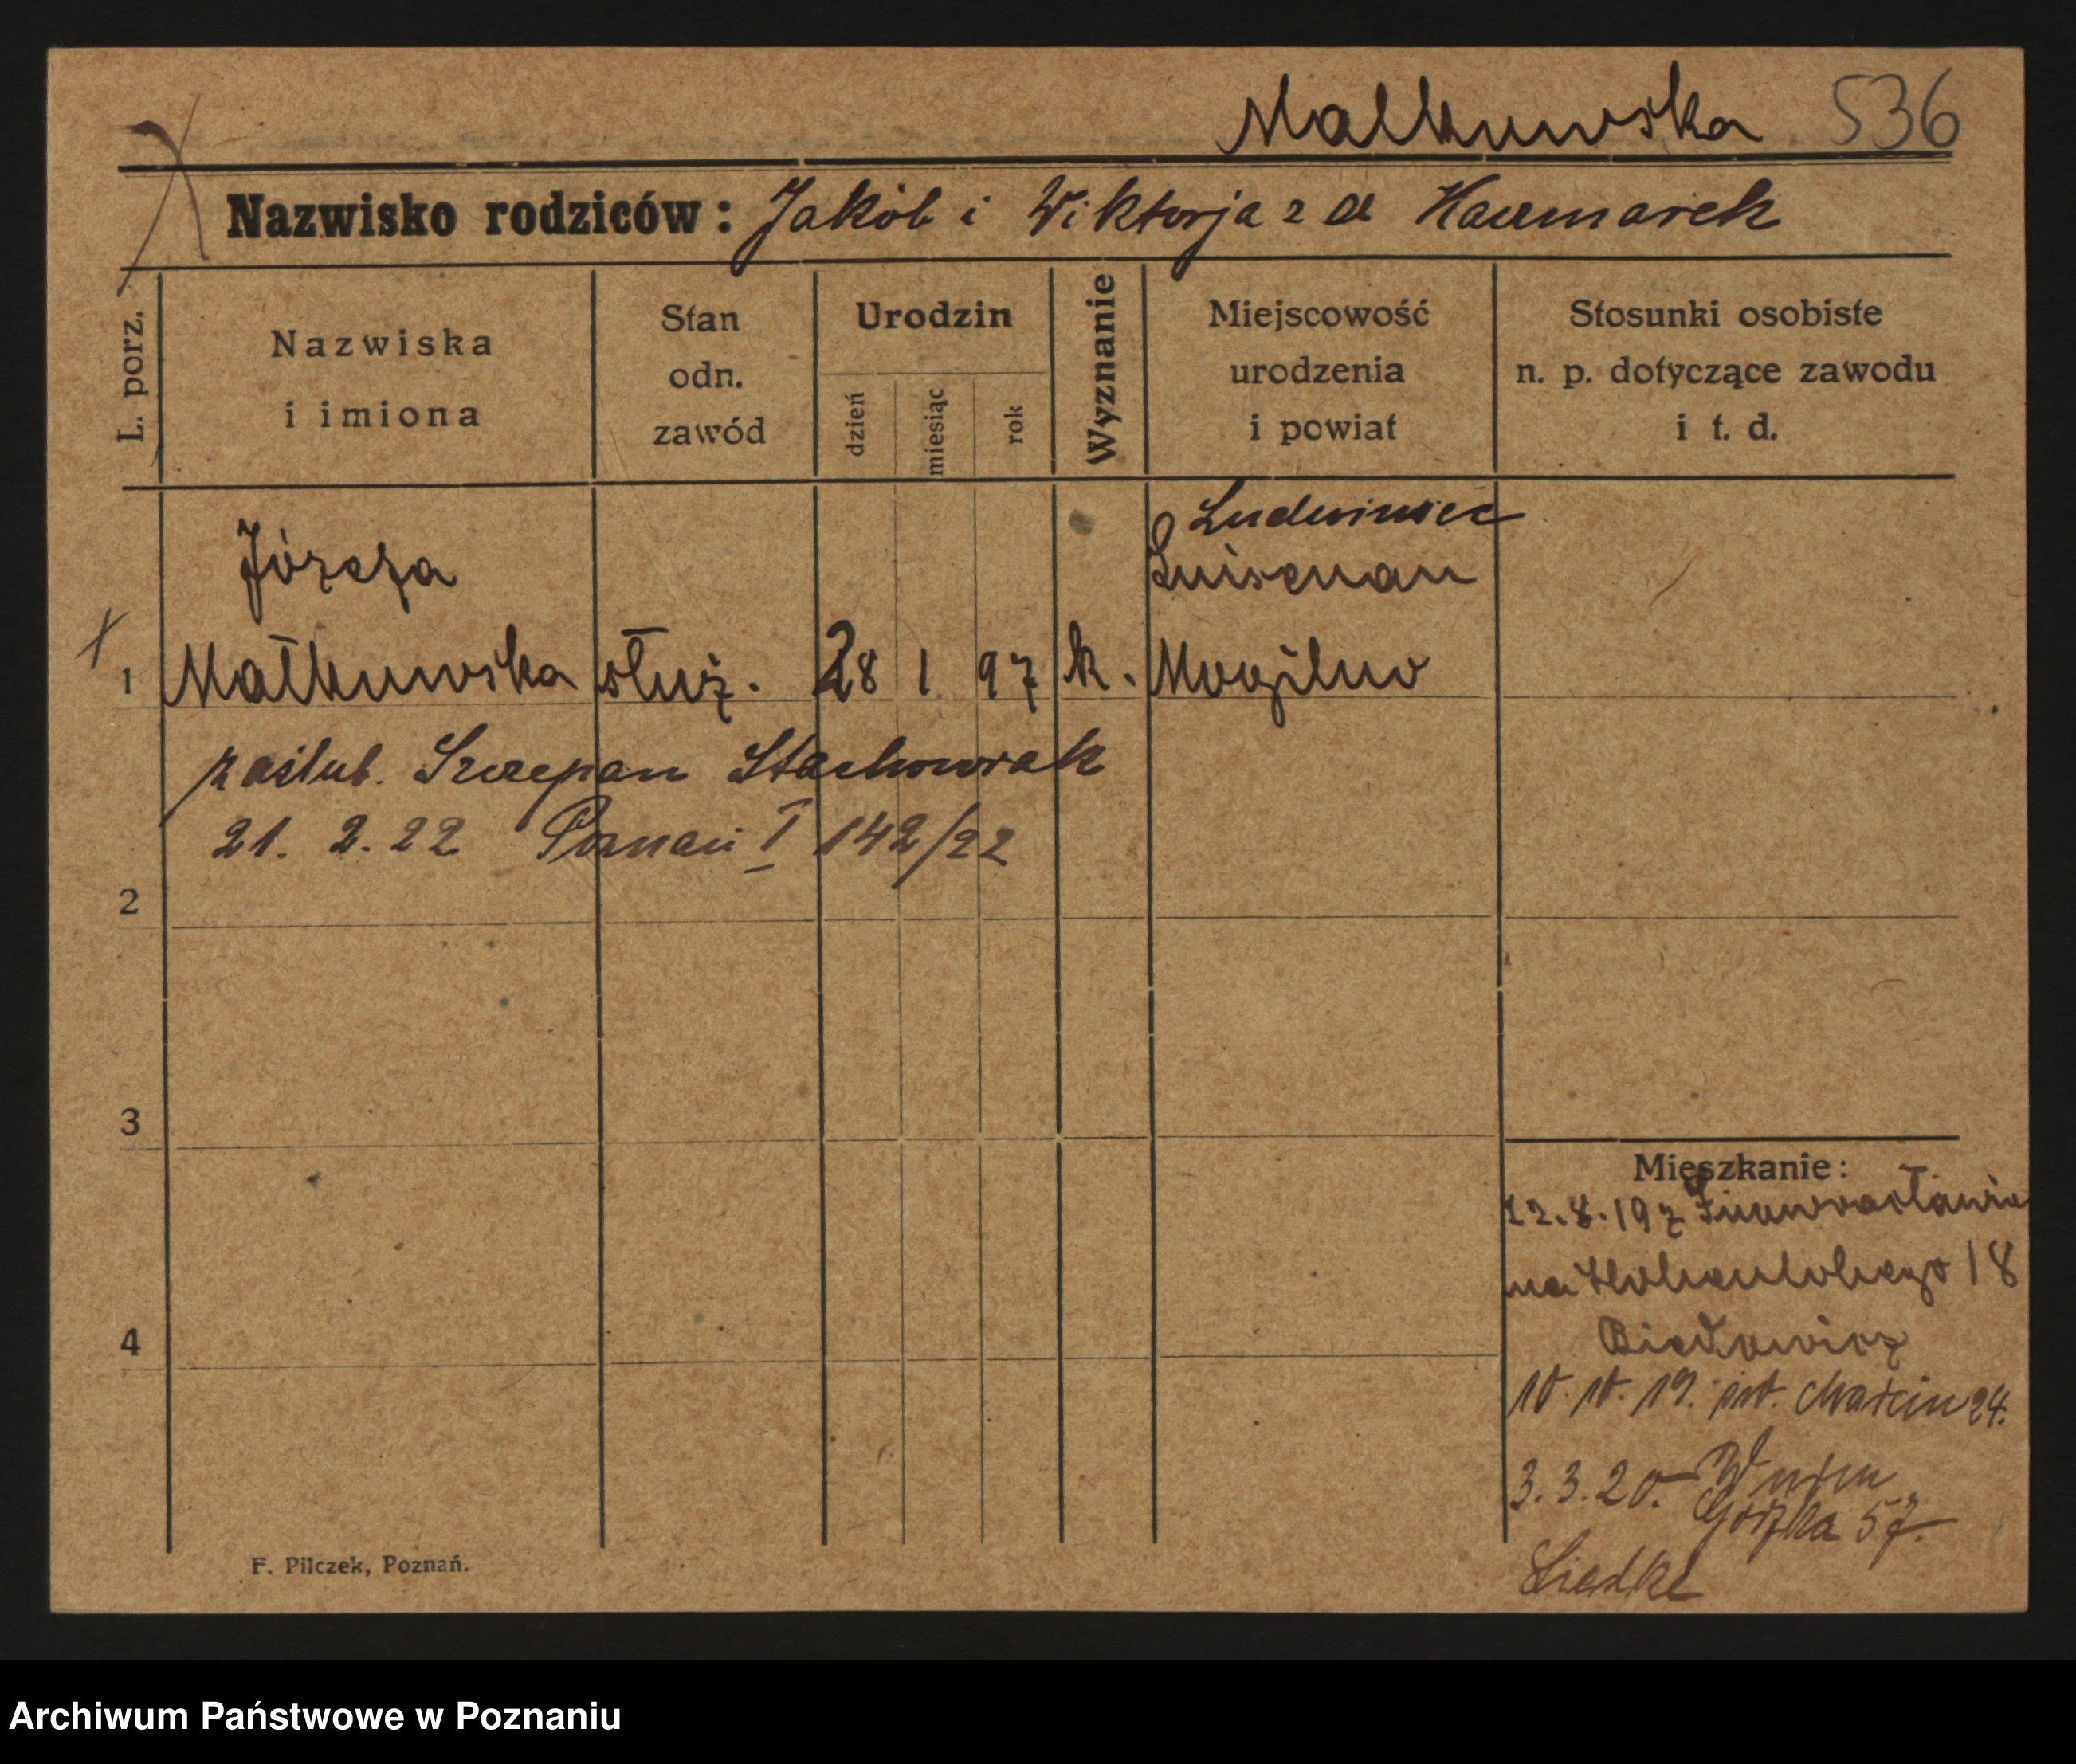 Małkuwska 536
Nazwisko rodziców: Jakób i Wiktorja z d Kaczmarek
L. porz.
Nazwiska
i imiona
Stan
odn.
zawód
Urodzin
dzień
miesiąc
rok
Wyznanie
Miejscowość
urodzenia
i powiat
Stosunki osobiste
n. p. dotyczące zawodu
i t. d.
Ludwiniec
Józefa Luisenau
1 Małkuwska służ. 28 1 97 k. Mogilno
zaślub. Szczepan Stachowiak
21. 2. 22 Poznań I 142/22
2
3
4
Mieszkanie:
22.8.19 z Inowrocławia
na Hohenlohego 18
10.10.19. św. Marcin 24.
3.3.20. Górn
Wilda 57.
Liedke
F. Pilczek, Poznań.
Archiwum Państwowe w Poznaniu